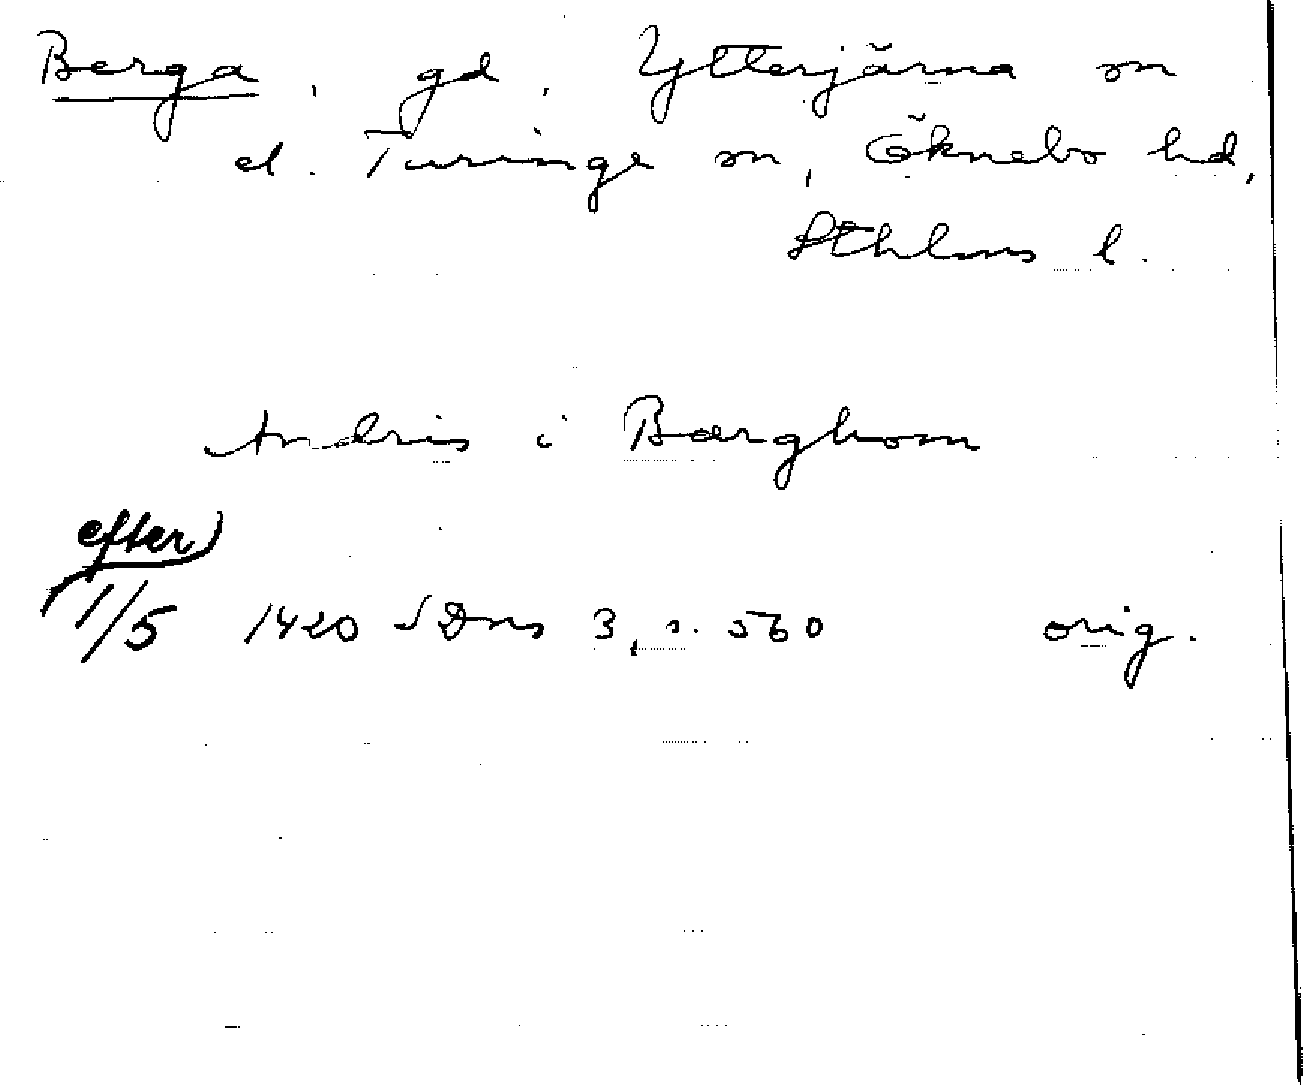 Berga, gd, Ytterjärna sn
el. Turinge sn, Öknebo hd,
Sthlms l.
Andris i Bærghom
efter
1/5 1420 SDns 3, s. 560 orig.